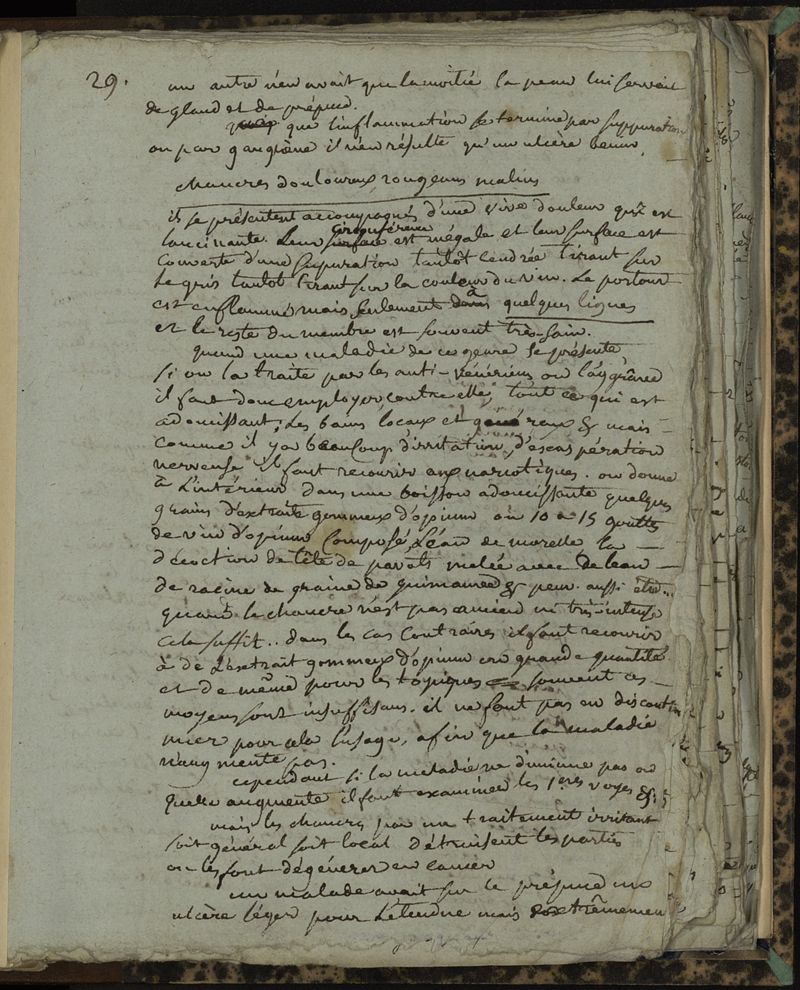 29. un autre n'en avait que la moitié la peau lui servait
de gland et de prépuce.
que l'inflammation se termine par suppuration
ou par gangrène il n'en résulte qu'un ulcère benin.
chancres douloureux, rongeans malins
ils se présentent accompagnés d'une vive douleur qui est
lancinante. Leur circonférence est inégale et leur surface est
couverte d'une supuration tantôt cendrée tirant sur
le gris tantôt tirant sur la couleur du vin. Le pourtour
est enflammé mais seulement à quelques lignes
et le reste du membre est souvent très-sain.
quand une maladie de ce genre se présente,
si on la traite par les anti-vénériens on l'aygrine
il faut donc employer contre elle, tout ce qui est
adoucissant; Les bains locaux et généraux & mais
comme il y a beaucoup d'irritation, d'exaspération
nerveuse il faut recourir aux narcotiques. on donne
à L'intérieur dans une boisson adoucissante quelques
grains d'extrait gommeux d'opium ou 10 a 15 gouttes
de vin d'opium composé, L'eau de morelle la
décoction de tête de pavots melée avec de l'eau
de racine de graine de guimauve & peu. aussi être..
quand le chancre n'est pas ancien ni très-intense
cela suffit.. dans les cas contraires il faut recourir
à de L'extrait gommeux d'opium en grande quantité
et de même pour les topiques souvent ces
moyens sont insuffisans. il ne faut pas en discontin
nuer pour cela l'usage, afin que la maladie
n'augmente pas.
cependant si la maladie ne diminue pas ou
qu'elle augmente il faut examiner les 1.eres voyes &.
mais les chancres par un traitement irritant
soit général soit local détruisent les parties
ou les font dégénérer en cancer
un malade avait sur le prépuce un
ulcère léger pour L'étendue mais extrêmemen